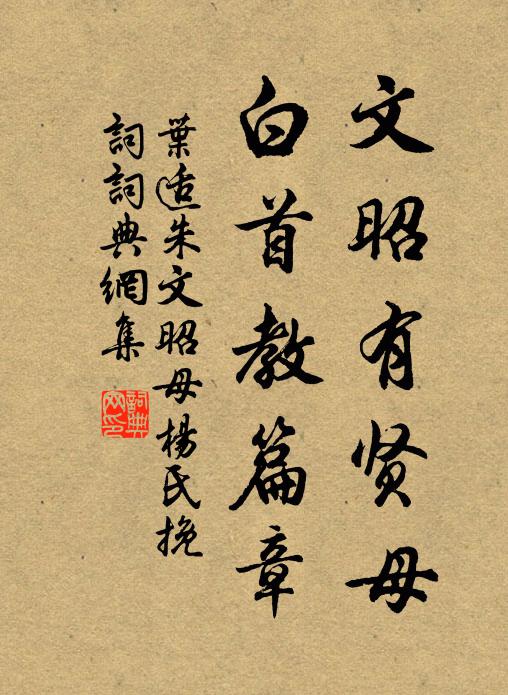 文昭有贤母
白首教篇章
葉适朱文昭母楊氏挽
詞詞典網集
詞典网印